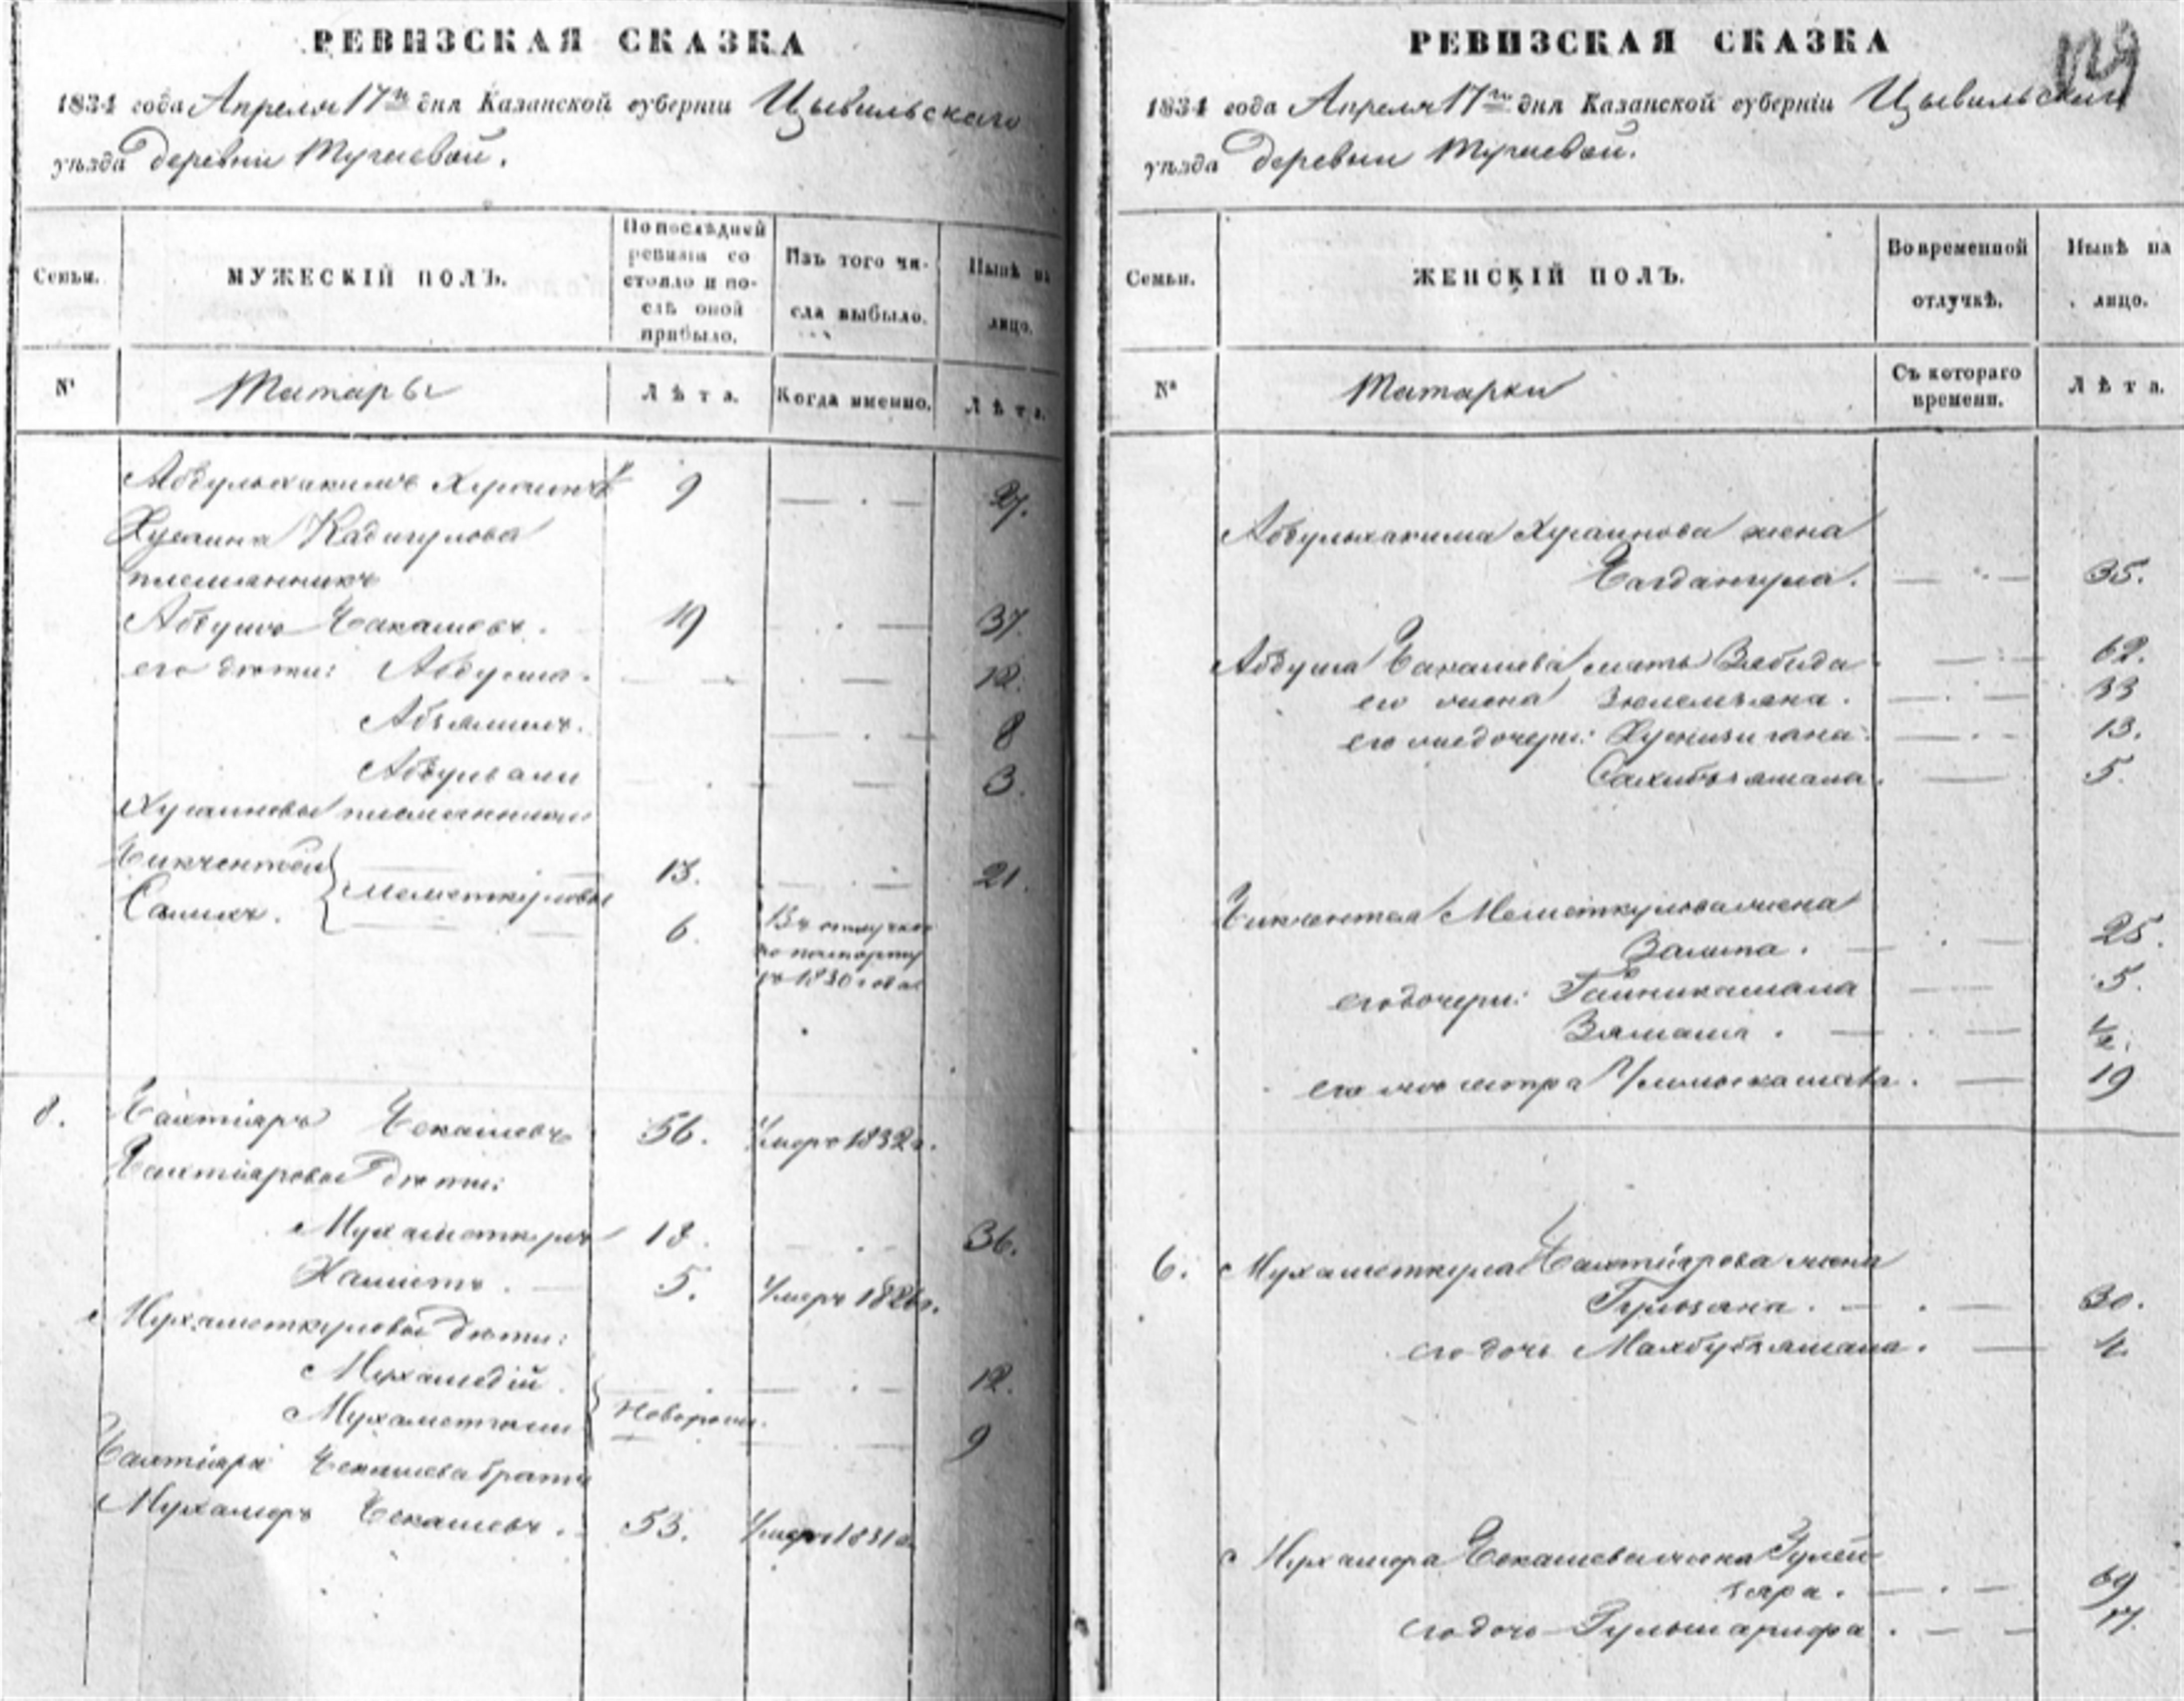 РЕВИЗСКАЯ СКАЗКА
1834 года Апреля 17го дня Казанской губерніи Цывильскаго
уѣзда деревни Тугаевой.
Семьи.
МУЖЕСКІЙ ПОЛЪ.
По послѣдней ревизіи состояло и послѣ оной прибыло.
Изъ того числа выбыло.
Нынѣ на лицо.
№
Татары
Лѣта.
Когда именно.
Лѣта.
Абдулхакимъ Хусаинъ 9 27.
Хусаина Кадигулова
племянникъ
Абдушъ Бакашевъ. 19 37.
его дѣти: Абдулла. 12.
Абзялилъ. 8
Абдулвали 3.
Хусаиновы племянники
Бикчентей
Салихъ. Меметкуловы
13. 21.
6. Въ отлучке
по паспорту
съ 1830 года
8. Бахтіяръ Бекашевъ 56. Умеръ 1832г.
Бахтіяровы дѣти:
Мухаметкулъ 18. 36.
Хамитъ. 5. Умеръ 1826г.
Мухаметкуловы дѣти:
Мухамедій 12.
Мухаметгали Новорожд. 9
Бахтіяра Бекашева братъ
Мухамеръ Бекашевъ. 53. Умеръ 1831г.
РЕВИЗСКАЯ СКАЗКА
129
1834 года Апреля 17го дня Казанской губерніи Цывильскаго
уѣзда деревни Тугаевой.
Семьи.
ЖЕНСКІЙ ПОЛЪ.
Во временной отлучкѣ.
Нынѣ на лицо.
№
Татарки
Съ котораго времени.
Лѣта.
Абдулхакима Хусаинова жена
Багдангула. 35.
Абдуша Бакашева мать Зябида 62.
его жена Зюлемьяна. 33
его же дочери: Хуснизигана. 13.
Сахибзямала. 5.
Бикчентея Меметкулова жена
Залипа. 25.
его дочери: Гайникамала 5.
Зямаша. 1/2.
его же сестра 19
6. Мухаметкула Бахтіярова жена
Гульзяна. 30.
его дочь Махбубзямала. 4.
Мухамера Бекашева жена Гулей-
зяра. 69
его дочь Гульшарифа. 17.